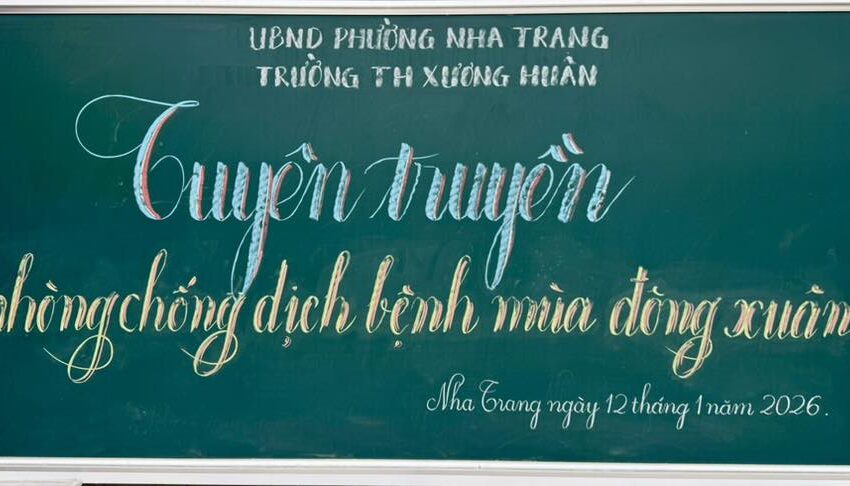 UBND PHƯỜNG NHA TRANG
TRƯỜNG TH XƯƠNG HUÂN
Tuyên truyền
phòng chống dịch bệnh mùa đông xuân
Nha Trang ngày 12 tháng 1 năm 2026.